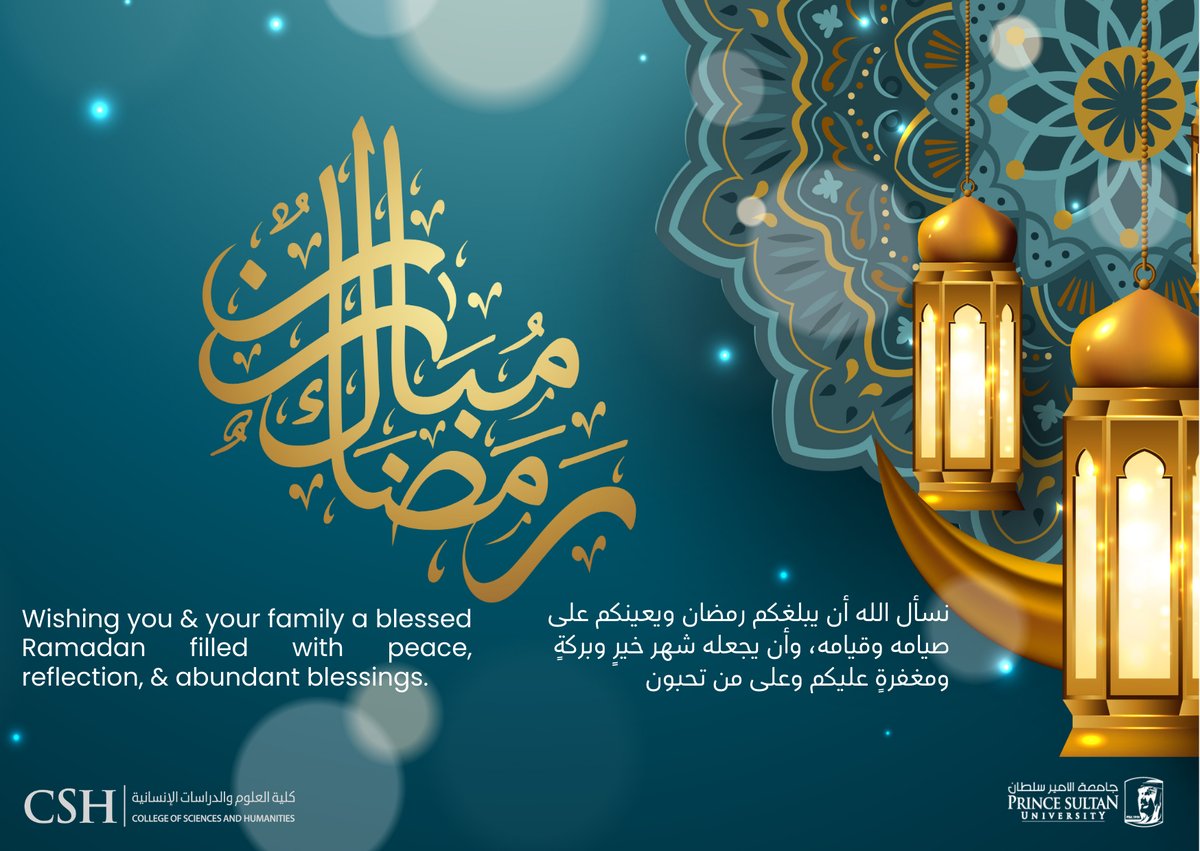 رَمَضَان مُبَارَك
Wishing you & your family a blessed
Ramadan filled with peace,
reflection, & abundant blessings.
نسأل الله أن يبلغكم رمضان ويعينكم على
صيامه وقيامه، وأن يجعله شهر خيرٍ وبركةٍ
ومغفرةٍ عليكم وعلى من تحبون
CSH
كلية العلوم والدراسات الإنسانية
COLLEGE OF SCIENCES AND HUMANITIES
جامعة الامير سلطان
PRINCE SULTAN
UNIVERSITY